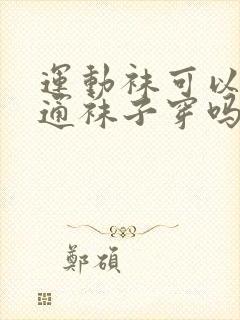 運動袜可以
通袜子穿吗
鄭碩